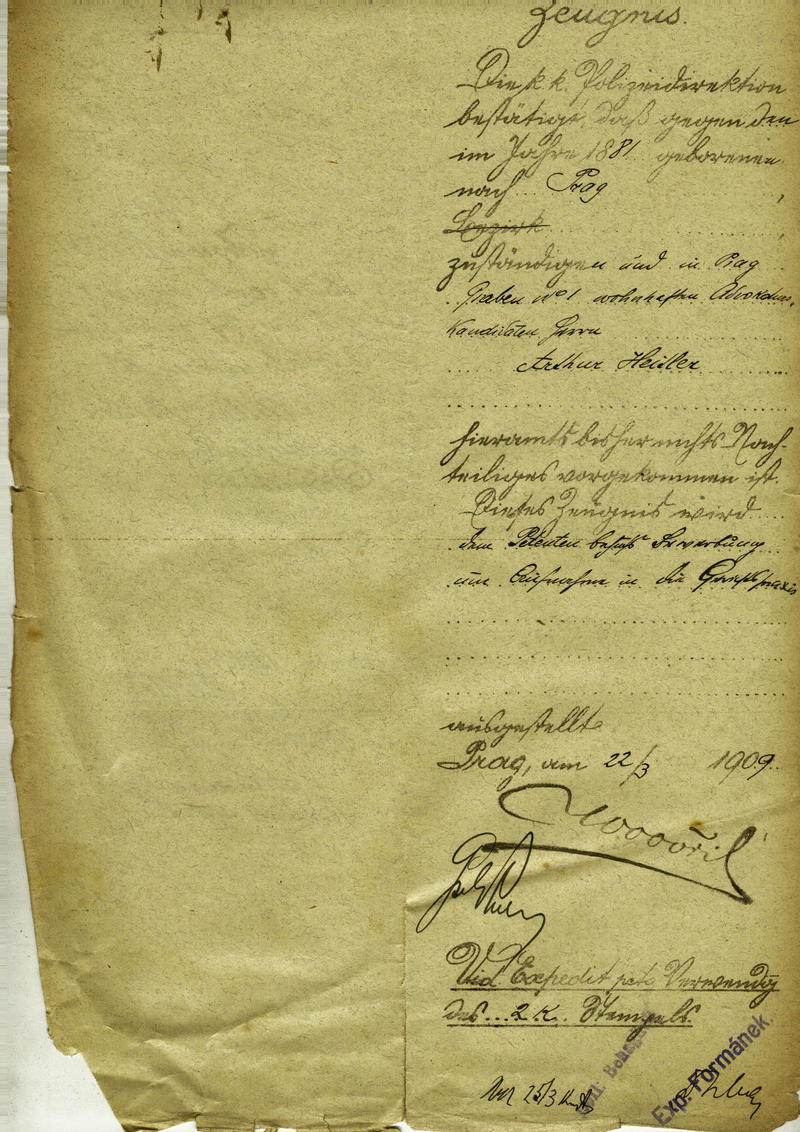 Zeugnis.
Die k.k. Polizeidirektion
bestätigt, daß gegen den
im Jahre 1881 geborenen
nach Prag,
Bezirk
zuständigen und in Prag
Graben No 1 wohnhaften Advokaturs-
kandidaten Herrn
Arthur Heisler
hieramts bisher nichts Nach-
teiliges vorgekommen ist.
Dieses Zeugnis wird
dem Petenten behufs Bewerbung
um Aufnahme in die Gerichtspraxis
ausgestellt
Prag, am 22/3 1909.
Vid. Expedit pcto Verwendg
des 2 K. Stempels.
25/3
Exp. Formánek.